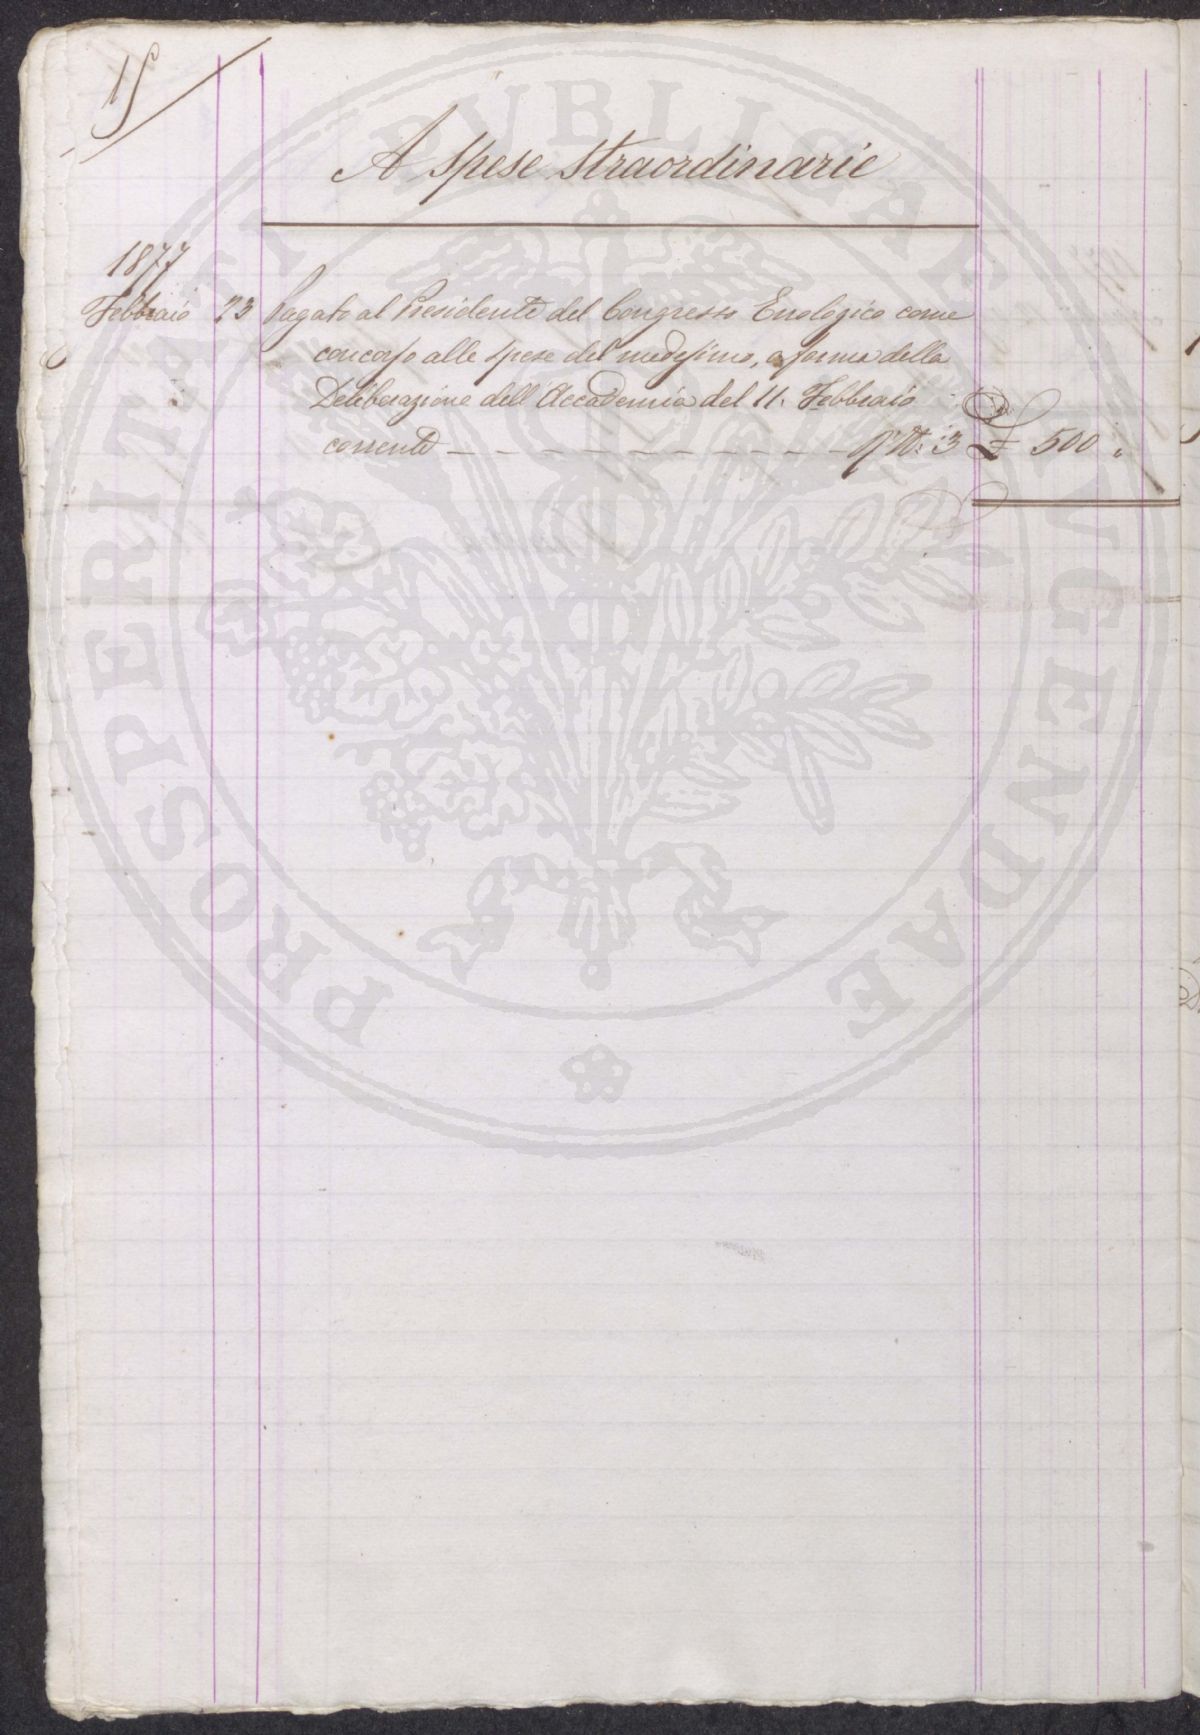 15
A spese straordinarie
1877
Febbraio 23 Pagato al Presidente del Congresso Enologico come
concorso alle spese del medesimo, a forma della
Deliberazione dell'Accademia del 11. Febbraio
corrente - - - - - - - - - - - 3 £ 500 "
PROSPERITATI PVBLICAE AVGENDAE